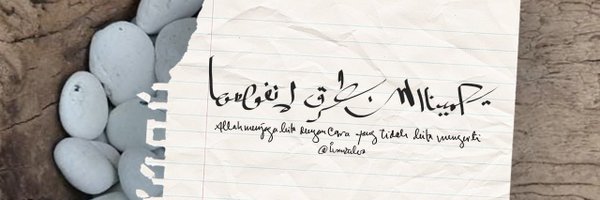 يحمينا الله بطرق لا نفهمها
Allah menjaga kita dengan cara yang tidak kita mengerti